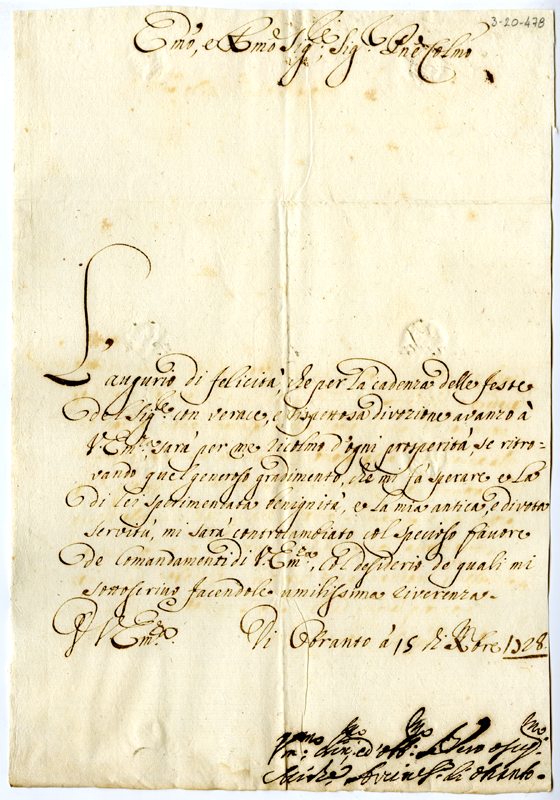 3-20-478
Emo, e Rmo Sigre, Sigr Pne Colmo
L'augurio di felicità, che per la cadenza delle feste
del Sigre con verace, e rispettosa divozione avanzo à
V. Emza sarà per me ricolmo d'ogni prosperità, se ritro-
vando quel generoso gradimento, che mi fà sperare e la
di lei sperimentata benignità, e la mia antica, e divota
servitù, mi sarà contracambiato col specioso favore
de Comandamenti di V. Emza, col desiderio de quali mi
sottoscrivo facendole umilissima riverenza.
V. Emza Di Otranto à 15 di Xbre 1728.
ed
di Otranto.